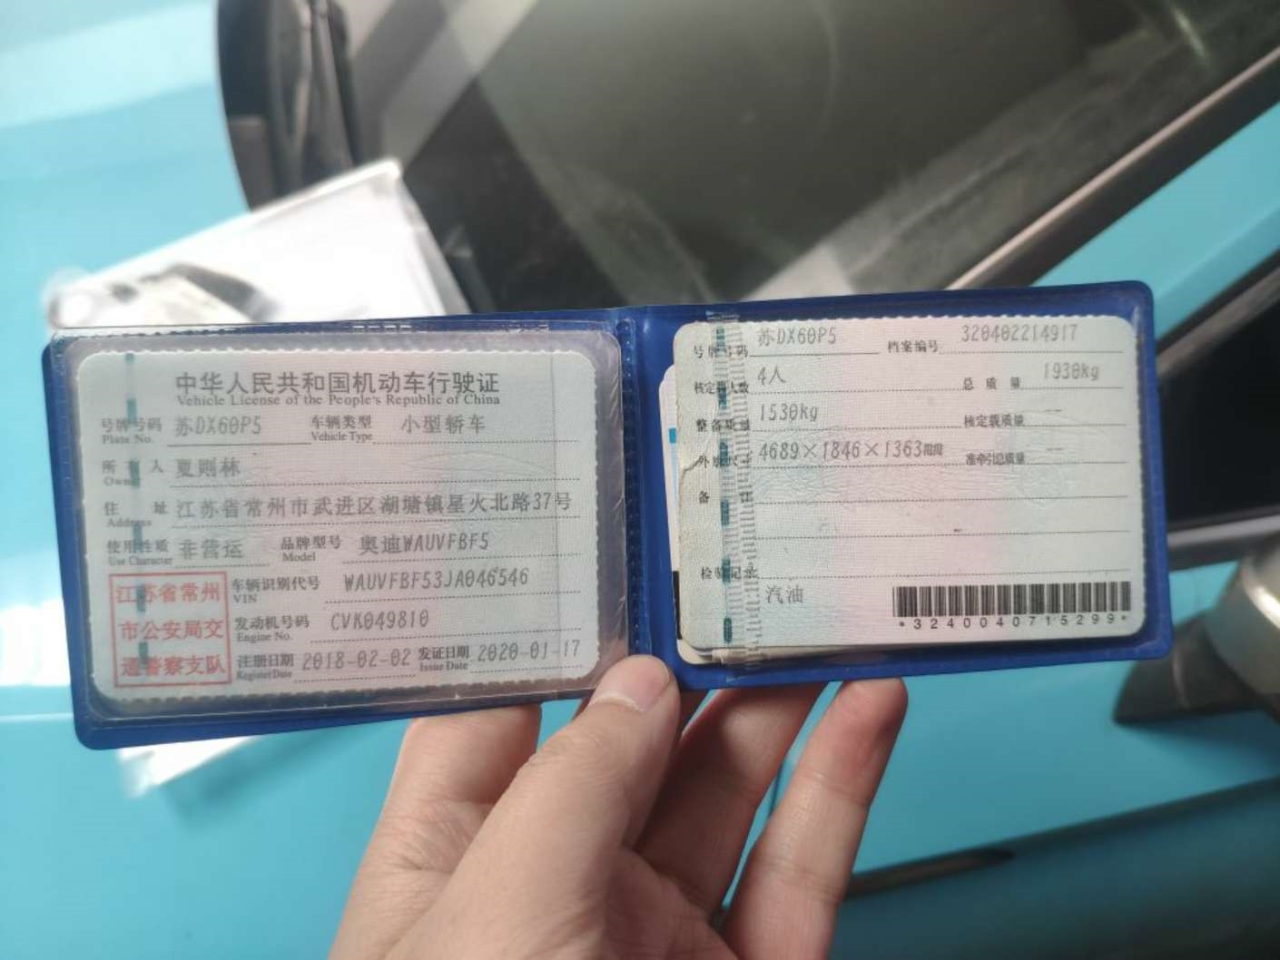 中华人民共和国机动车行驶证
Vehicle License of the People's Republic of China
号牌号码 苏DX60P5 车辆类型 小型轿车
Plate No. Vehicle Type
所有人 夏则林
Owner
住址 江苏省常州市武进区湖塘镇星火北路37号
Address
使用性质 非营运 品牌型号 奥迪WAUVFBF5
Use Character Model
江苏省常州
市公安局交
通警察支队
车辆识别代号 WAUVFBF53JA046546
VIN
发动机号码 CVK049810
Engine No.
注册日期 2018-02-02 发证日期 2020-01-17
Register Date Issue Date
号牌号码 苏DX60P5 档案编号 320402214917
核定载人数 4人 总质量 1930kg
整备质量 1530kg 核定载质量 --
外廓尺寸 4689×1846×1363mm 准牵引总质量 --
备注
检验记录
汽油
*3240040715299*